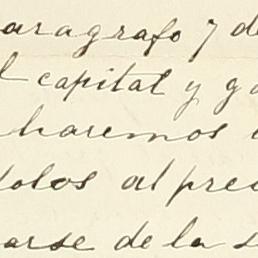 aragrafo 7 de
l capital y ga
haremos
dolos al prec
arse de la s